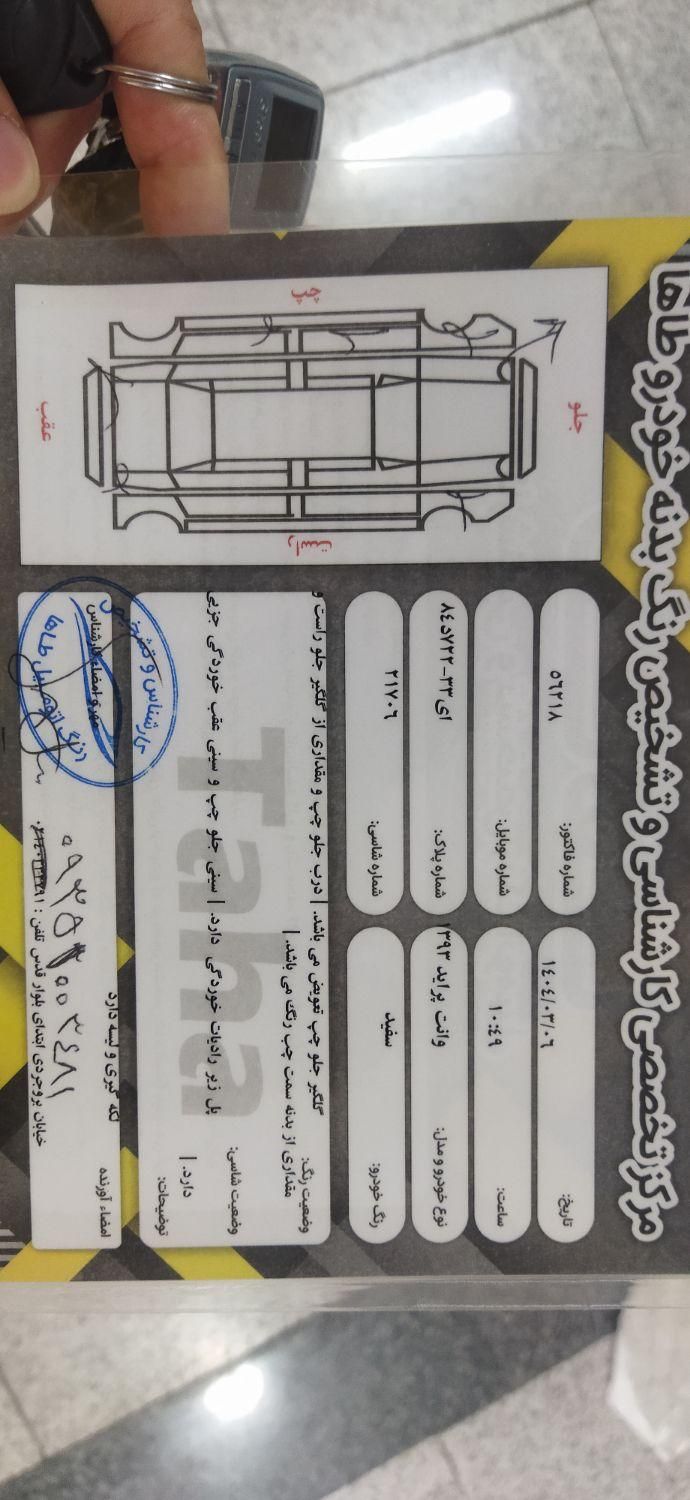 مرکز تخصصی کارشناسی و تشخیص رنگ بدنه خودرو طاها
تاریخ: ۱۴۰۴/۰۳/۰۶
شماره فاکتور: ۵۶۲۱۸
ساعت: ۱۰:٤۹
شماره موبایل:
نوع خودرو و مدل: وانت پراید ۱۳۹۳
شماره پلاک: ای۳۳-۷۲۲د۸٤
رنگ خودرو: سفید
شماره شاسی: ۲۱۷۰۶
جلو
چپ
عقب
وضعیت رنگ: گلگیر جلو چپ تعویض می باشد. | درب جلو چپ و مقداری از گلگیر جلو راست و
مقداری از بدنه سمت چپ رنگ می باشد. |
وضعیت شاسی: پل زیر رادیات خوردگی دارد. | سینی جلو چپ و سینی عقب خوردگی جزیی
دارد. |
توضیحات:
Taha
لکه گیری و لیسه دارد
امضاء آورنده
مهر و امضاء کارشناس
کارشناس و تشخیص
خیابان بروجردی ابتدای بلوار قدس تلفن :